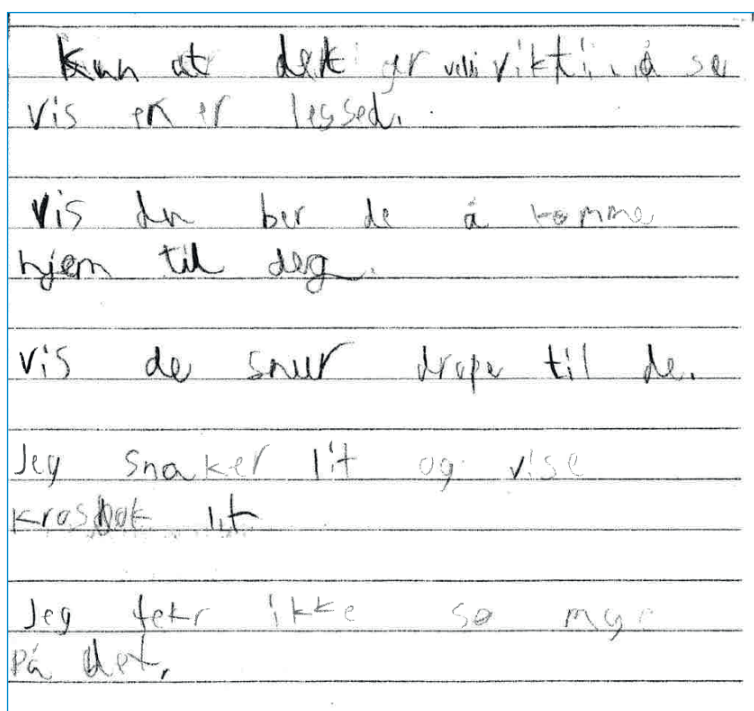 kun at det er veldi vikti å se
vis en er lessed.
vis du ber de å komme
hjem til deg.
vis de snur drape til de.
Jeg snaker lit og vise
krosbok lit
Jeg tekr ikke so mye
på det.